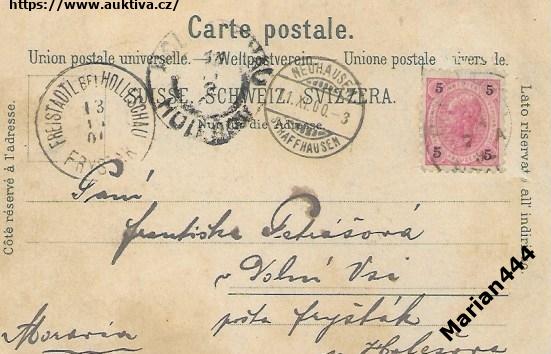 https://www.auktiva.cz/
Carte postale.
Union postale universelle. Weltpostverein. Unione postale universale.
SUISSE. SCHWEIZ. SVIZZERA.
Nur für die Adresse.
Côte réservé à l'adresse.
Lato riservato all'indirizzo.
FREISTADTL BEI HOLLESCHAU
FRYŠTÁK
NEUHAUSEN
SCHAFFHAUSEN
5 5
5 5
Paní
Františka Petrášová
v Dolní Vsi
pošta Fryšták
Moravia
u Holešova
Marian444